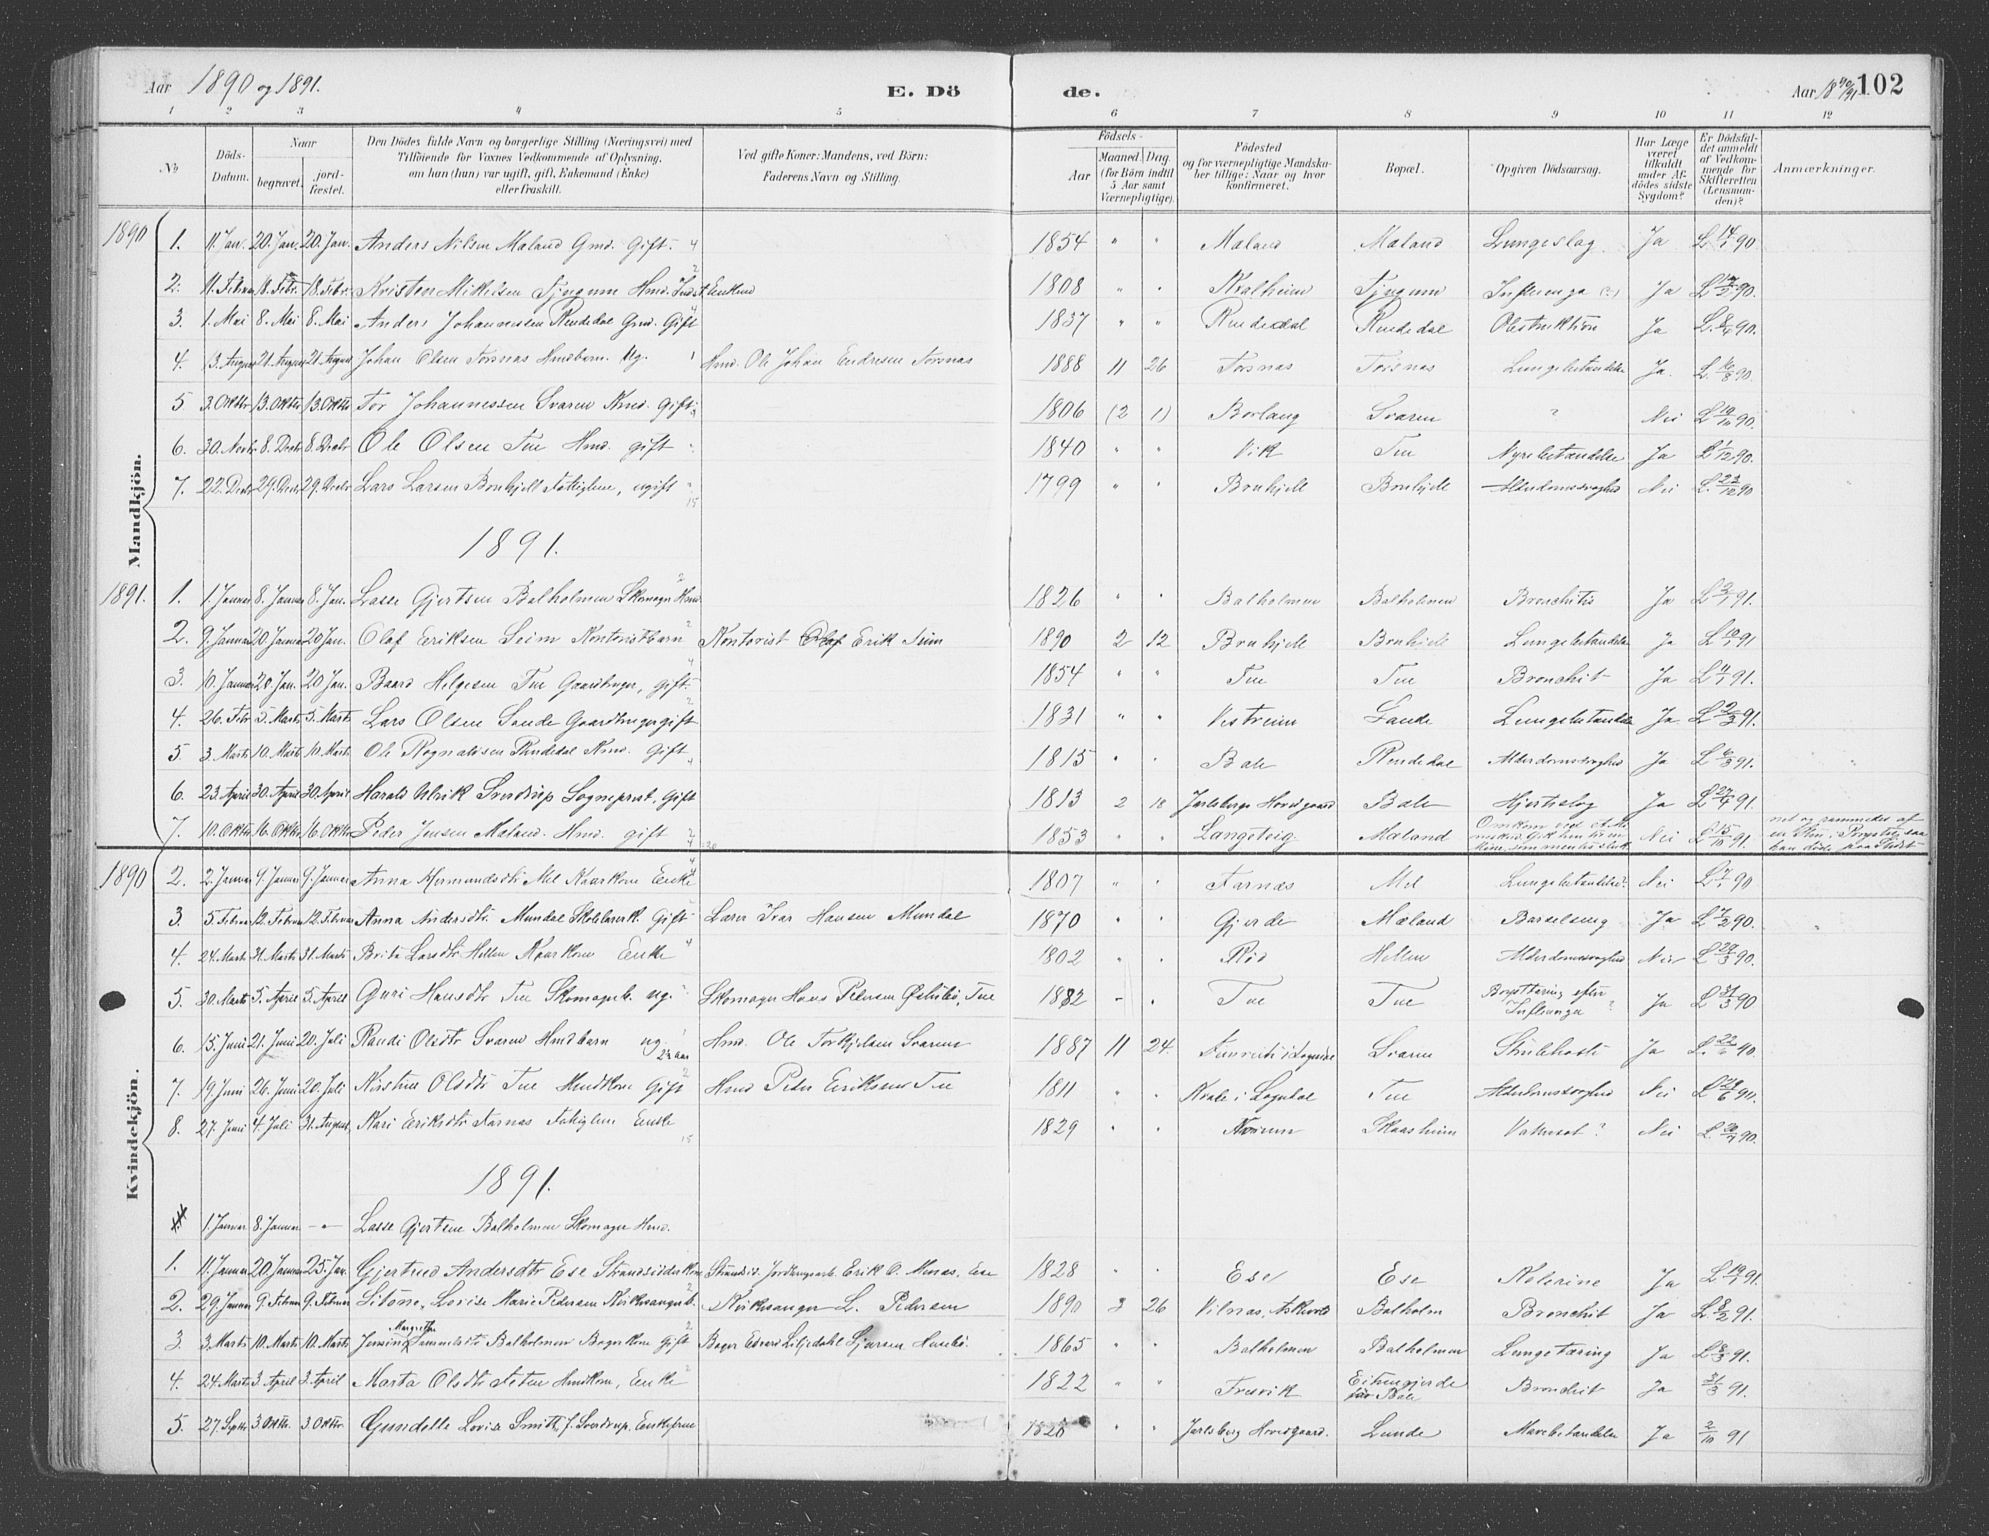 Aar 1890 og 1891. E. Dö de. Aar 18 90/91 102
1 2 3 4 5 6 7 8 9 10 11 12
No Döds-Datum. Naar begravet. jord-fæstet. Den Dödes fulde Navn og borgerlige Stilling (Næringsvei) med Tilföiende for Voxnes Vedkommende af Oplysning, om han (hun) var ugift, gift, Enkemand (Enke) eller fraskilt. Ved gifte Koner: Mandens, ved Börn: Faderens Navn og Stilling. Födsels- Aar Maaned. Dag. (for Börn indtil 5 Aar samt Værnepligtige). Födested og for værnepligtige Mandskaber tillige: Naar og hvor konfirmeret. Bopæl. Opgiven Dödsaarsag. Har Læge været tilkaldt under Afdödes sidste Sygdom? Er Dödsfaldet anmeldt af Vedkommende for Skifteretten (Lensmanden)? Anmærkninger.
Mandkjön.
1890 1. 11. Jan. 20. Jan. 20. Jan. Anders Nilsen Mæland Gmd. Gift. 4 1854 " " Mæland Mæland Lungeslag Ja L 14/1 90
2. 11. Febr 18. Febr. 18. Febr. Kristen Mikelsen Tjugum Hmd. Indst. Enkmd 1808 " " Kvalheim Tjugum Influenza (?) Ja L 90.
3. 1. Mai 8. Mai 8. Mai Anders Johannessen Rendedal Gmd. Gift 1837 " " Rendedal Rendedal Obstruktion Ja L. 90.
4. 13. August 21. August 21. August Johan Olsen Torsnas Hmdbarn. Ug. 1 Hmd. Ole Johan Endresen Torsnas 1888 11 26 Torsnas Torsnas Lungebetændelse Ja. L. 16/8 90.
5 3. Oktbr 13. Oktbr 13. Oktbr Tor Johannessen Svaren Kmd. Gift 1806 (2 1) Borlaug Svaren ? Nei L 10/10 90.
6. 30. Novbr 8. Decbr 8. Decbr Ole Olsen Tue Hmd. gift 1840 " " Vik Tue Nyrebetændelse Ja L 1/12 90.
7. 22. Decbr 29. Decbr 29. Decbr Lars Larsen Brnhjell Fattiglem, ugift 15 1799 " " Brnhjell Brnhjell Alderdomssvaghed Nei L. 23/12 90
1891.
1891. 1. 1. Januar 8. Januar 8. Jan. Lasse Gjertsen Balholmen Skomager Hmd. 1826 " " Balholmen Balholmen Bronchitis Ja L 2/1 91.
2. 9. Januar 20 Januar 20 Jan. Olaf Eriksen Seim Kontoristbarn Kontorist Olaf Erik Seim 1890 2 12 Brnhjell Brnhjell Lungebetændelse Ja L 10/1 91
3. 10. Januar 20. Jan. 20 Jan. Baard Helgesen Tue Gaardbruger, gift 1854 " " Tue Tue Bronchit Ja L 91.
4. 26. Febr 5. Marts 5. Marts Lars Olsen Lunde Gaardbruger gift 1831 " " Vestreim Lunde Lungebetændelse Ja L 2/3 91.
5 3. Marts 10. Marts 10. Marts Ole Rognaldsen Rendedal Kmd. Gift 1815 " " Bale Rendedal Alderdomssvaghed Ja L 6/3 91.
6. 23. April 30. April 30. April Harald Ulrik Sverdrup Sogneprest, Gift 1813 2 18 Jarlsbergs Hovedgaard Bale Hjerteslag Ja L 27/4 91.
7. 10. Oktbr 16. Oktbr 16. Oktbr Peder Jensen Mæland. Hmd. gift 1853 " Langetvig Mæland Omkom ved Nei L 15/10 91.
Kvindekjön.
1890 2. 2. Januar 9. Januar 9. Januar Anna Hermundsdtr Mel Kaarkone Enke 4 1807 " " Farnæs Mel Lungebetændelse. Nei L 7/1 90
3. 5. Februar 12. Februar 12. Februar Anna Andersdtr. Mundal Skolelærerk. Gift Lærer Ivar Hansen Mundal 1870 " " Gjerde Mæland Barselseng Ja L 7/2 90.
4. 24. Marts 31. Marts 31. Marts Brita Larsdtr Hellen Kaarkone Enke 4 1802 " " Röd Hellen Alderdomssvaghed Nei L 29/3 90.
5. 30. Marts 5. April 5. April Guri Hansdtr Tue Skomagerb. ug. Skomager Hans Pedersen Østebö, Tue 1882 " " Tue Tue Brysttæring efter Influenza ? Ja L 31/3 90
6. 15. Juni 21. Juni 20. Juli Randi Olsdtr Svaren Hmdbarn ug. 2½ aar Hmd. Ole Torkjelsen Svaren 1887 11 24. i Sogndal Svaren Strubehoste Ja L. 22/6 90.
7 19. Juni 26. Juni 20. Juli Kirstine Olsdtr Tue Hmdkone Gift Hmd Peder Eriksen Tue 1811 " " Kvale i Sogndal Tue Alderdomssvaghed Nei L 26/6 90.
8. 27. Juni 4. Juli 31. August Kari Eriksdtr Farnas Fattiglem Enke 15 1829 " " Skaasheim Vattersot ? Nei L. 90.
1891.
1. Januar 8. Januar - " - Lasse Gjertsen Balholmen Skomager Hmd.
1. 11. Januar 20. Januar 25. Jan. Gjertrud Andersdtr Ese Strandsidderkone Strands. Jordbrugsarb. Erik O. Menes, Ese 1828 " " Ese Ese Kolerine Ja L 19/1 91.
2. 29. Januar 9. Februar 9. Februar Sitone, Lovise Marie Pedersen Kirkesangerb. Kirkesanger L. Pedersen 1890 3 26 Vilnæs, Askvold Balholm Bronchit Ja L 8/2 91.
3. 3. Marts 10. Marts 10. Marts Jensine Margrethe Samuelsdtr Balholmen Bagerkone Gift Bager Edvard Liljedahl Sjursen Husebö. 1865 " " Balholmen Balholmen Lungetæring Ja L 8/3 91.
4. 24. Marts 3. April 3. April Marta Olsdtr Hmdkone, Enke 2 1822 " " Fresvik Eitungjerde Bale Bronchit Ja 31/3 91.
5. 27. Septbr 3 Oktbr. 3 Oktbr Gundelle Lovise Smith, f. Sverdrup, Enkefrue 1828 " " Jarlsberg Hovedgaard. Lunde Mavebetændelse Ja 2/10 91